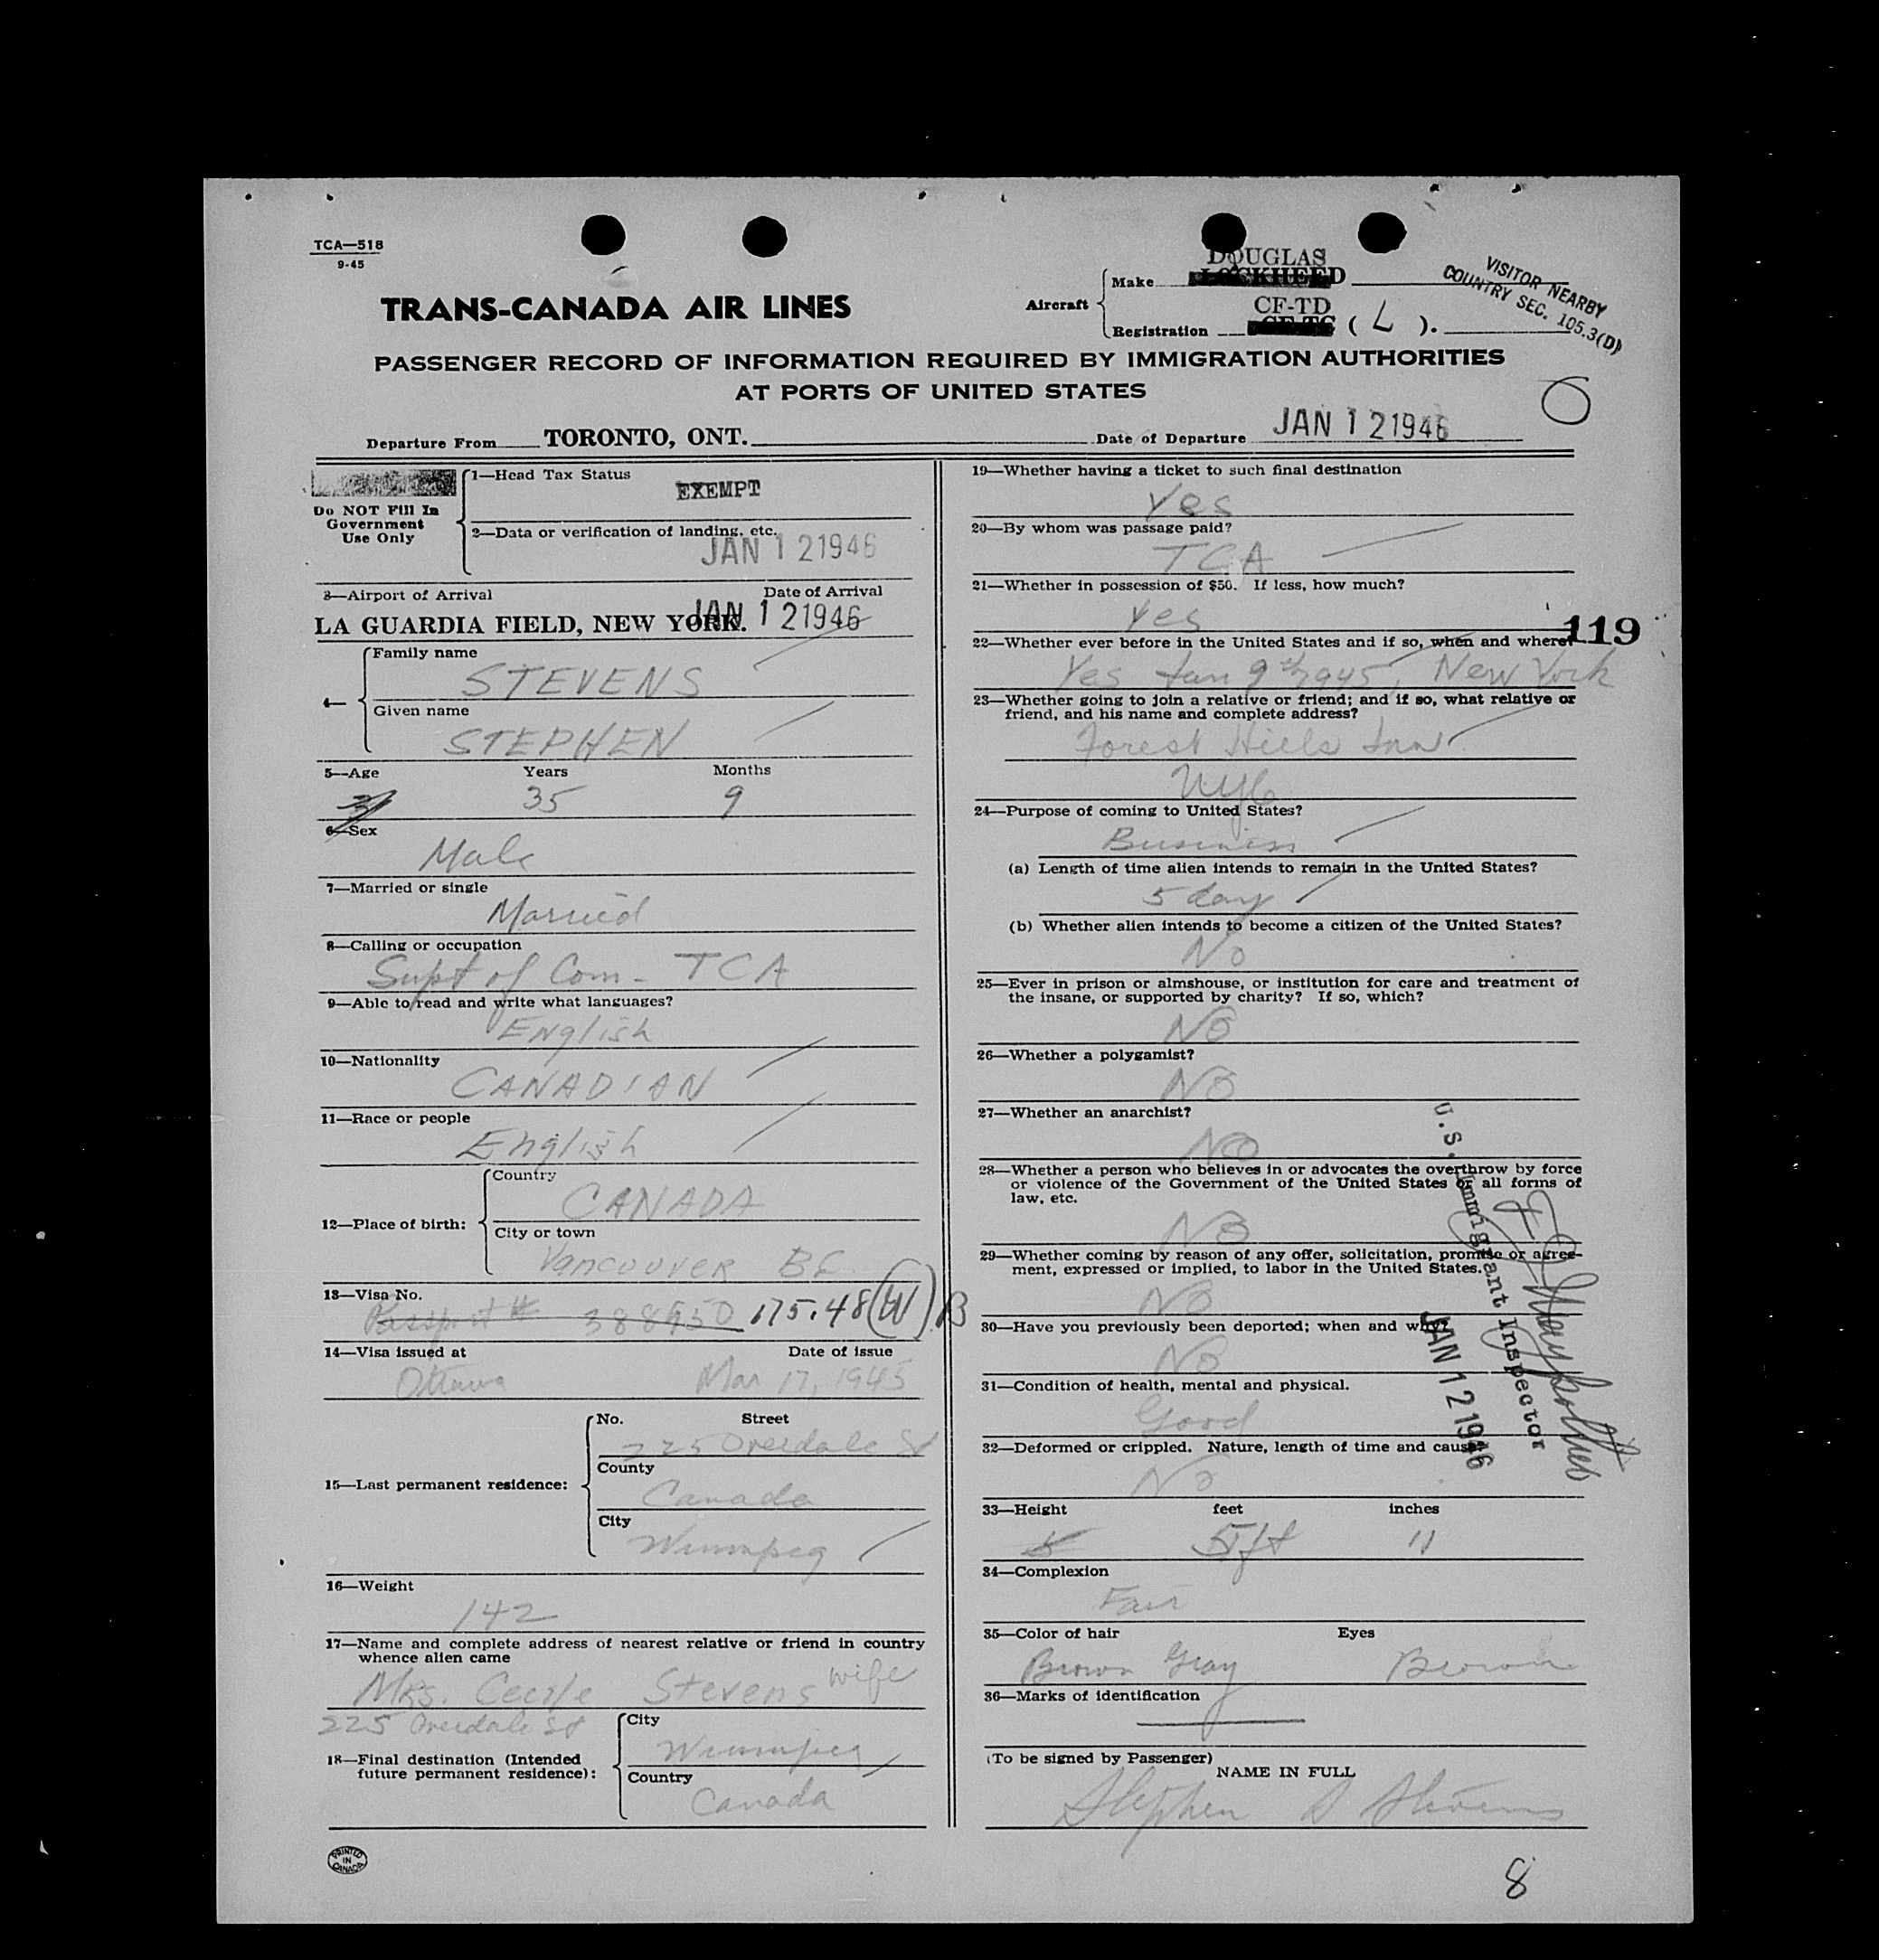 TCA—518
9-45
TRANS-CANADA AIR LINES
Aircraft
Make
DOUGLAS
LOCKHEED
Registration
CF-TD
CF-TC ( L ).
VISITOR NEARBY
COUNTRY SEC. 105.3(D)
PASSENGER RECORD OF INFORMATION REQUIRED BY IMMIGRATION AUTHORITIES
AT PORTS OF UNITED STATES
Departure From TORONTO, ONT. Date of Departure JAN 12 1946
Do NOT Fill In
Government
Use Only
1—Head Tax Status
EXEMPT
2—Data or verification of landing, etc.
JAN 12 1946
3—Airport of Arrival Date of Arrival
LA GUARDIA FIELD, NEW YORK. JAN 12 1946
4—
Family name
STEVENS
Given name
STEPHEN
5—Age Years Months
35 9
6—Sex
Male
7—Married or single
Married
8—Calling or occupation
Supt of Com - TCA
9—Able to read and write what languages?
English
10—Nationality
CANADIAN
11—Race or people
English
12—Place of birth:
Country
CANADA
City or town
Vancouver BC
13—Visa No.
Passport # 388950 175.48 (W) B
14—Visa issued at Date of issue
Ottawa Mar 17, 1945
15—Last permanent residence:
No. Street
225 Overdale St
County
Canada
City
Winnipeg
16—Weight
142
17—Name and complete address of nearest relative or friend in country
whence alien came
Mrs. Cecile Stevens wife
225 Overdale St
18—Final destination (Intended
future permanent residence):
City
Winnipeg
Country
Canada
PRINTED
IN
CANADA
19—Whether having a ticket to such final destination
Yes
20—By whom was passage paid?
TCA
21—Whether in possession of $50. If less, how much?
Yes
119
22—Whether ever before in the United States and if so, when and where?
Yes Jan 9th 1945, New York
23—Whether going to join a relative or friend; and if so, what relative or
friend, and his name and complete address?
Forest Hills Inn
NYC
24—Purpose of coming to United States?
Business
(a) Length of time alien intends to remain in the United States?
5 day
(b) Whether alien intends to become a citizen of the United States?
No
25—Ever in prison or almshouse, or institution for care and treatment of
the insane, or supported by charity? If so, which?
No
26—Whether a polygamist?
No
27—Whether an anarchist?
No
28—Whether a person who believes in or advocates the overthrow by force
or violence of the Government of the United States or all forms of
law, etc.
No
29—Whether coming by reason of any offer, solicitation, promise or agree-
ment, expressed or implied, to labor in the United States.
No
30—Have you previously been deported; when and why?
No
31—Condition of health, mental and physical.
Good
32—Deformed or crippled. Nature, length of time and cause
No
U.S. Immigrant Inspector
JAN 12 1946
33—Height feet inches
5 5ft 11
34—Complexion
Fair
35—Color of hair Eyes
Brown Gray Brown
36—Marks of identification
(To be signed by Passenger)
NAME IN FULL
Stephen S Stevens
8